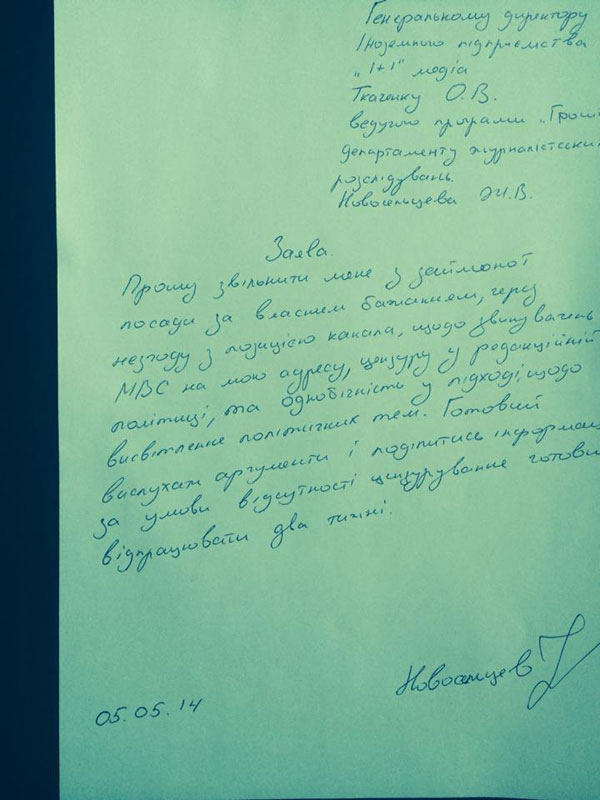 Генеральному директору
Іноземного підприємства
„1+1" медіа
Ткаченку О.В.
ведучого програми „Гроші
департаменту журналістських
розслідувань
Новосельцева Ж.В.
Заява.
Прошу звільнити мене з займаної
посади за власним бажанням, через
незгоду з позицією канала, щодо звинувачень
МВС на мою адресу, цензуру у редакційній
політиці, та однобічність у підході, щодо
висвітлення політичних тем. Готовий
вислухати аргументи і поділитись інформаці
за умови відсутності цензурування готовий
відпрацювати два тижні.
05.05.14
Новосельцев